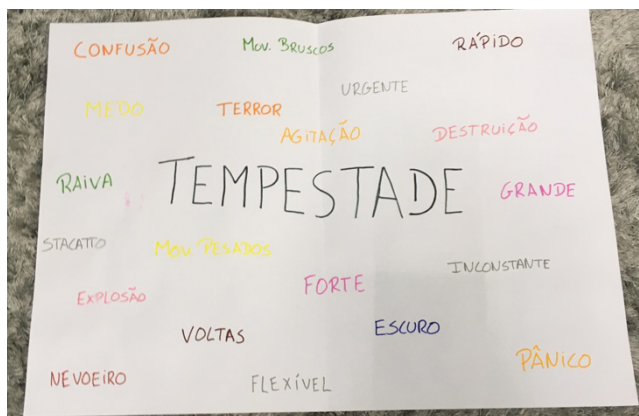 CONFUSÃO
MOV. BRUSCOS
RÁPIDO
URGENTE
MEDO
TERROR
AGITAÇÃO
DESTRUIÇÃO
RAIVA
TEMPESTADE
GRANDE
STACATTO
MOV PESADOS
INCONSTANTE
EXPLOSÃO
FORTE
VOLTAS
ESCURO
PÂNICO
NEVOEIRO
FLEXÍVEL